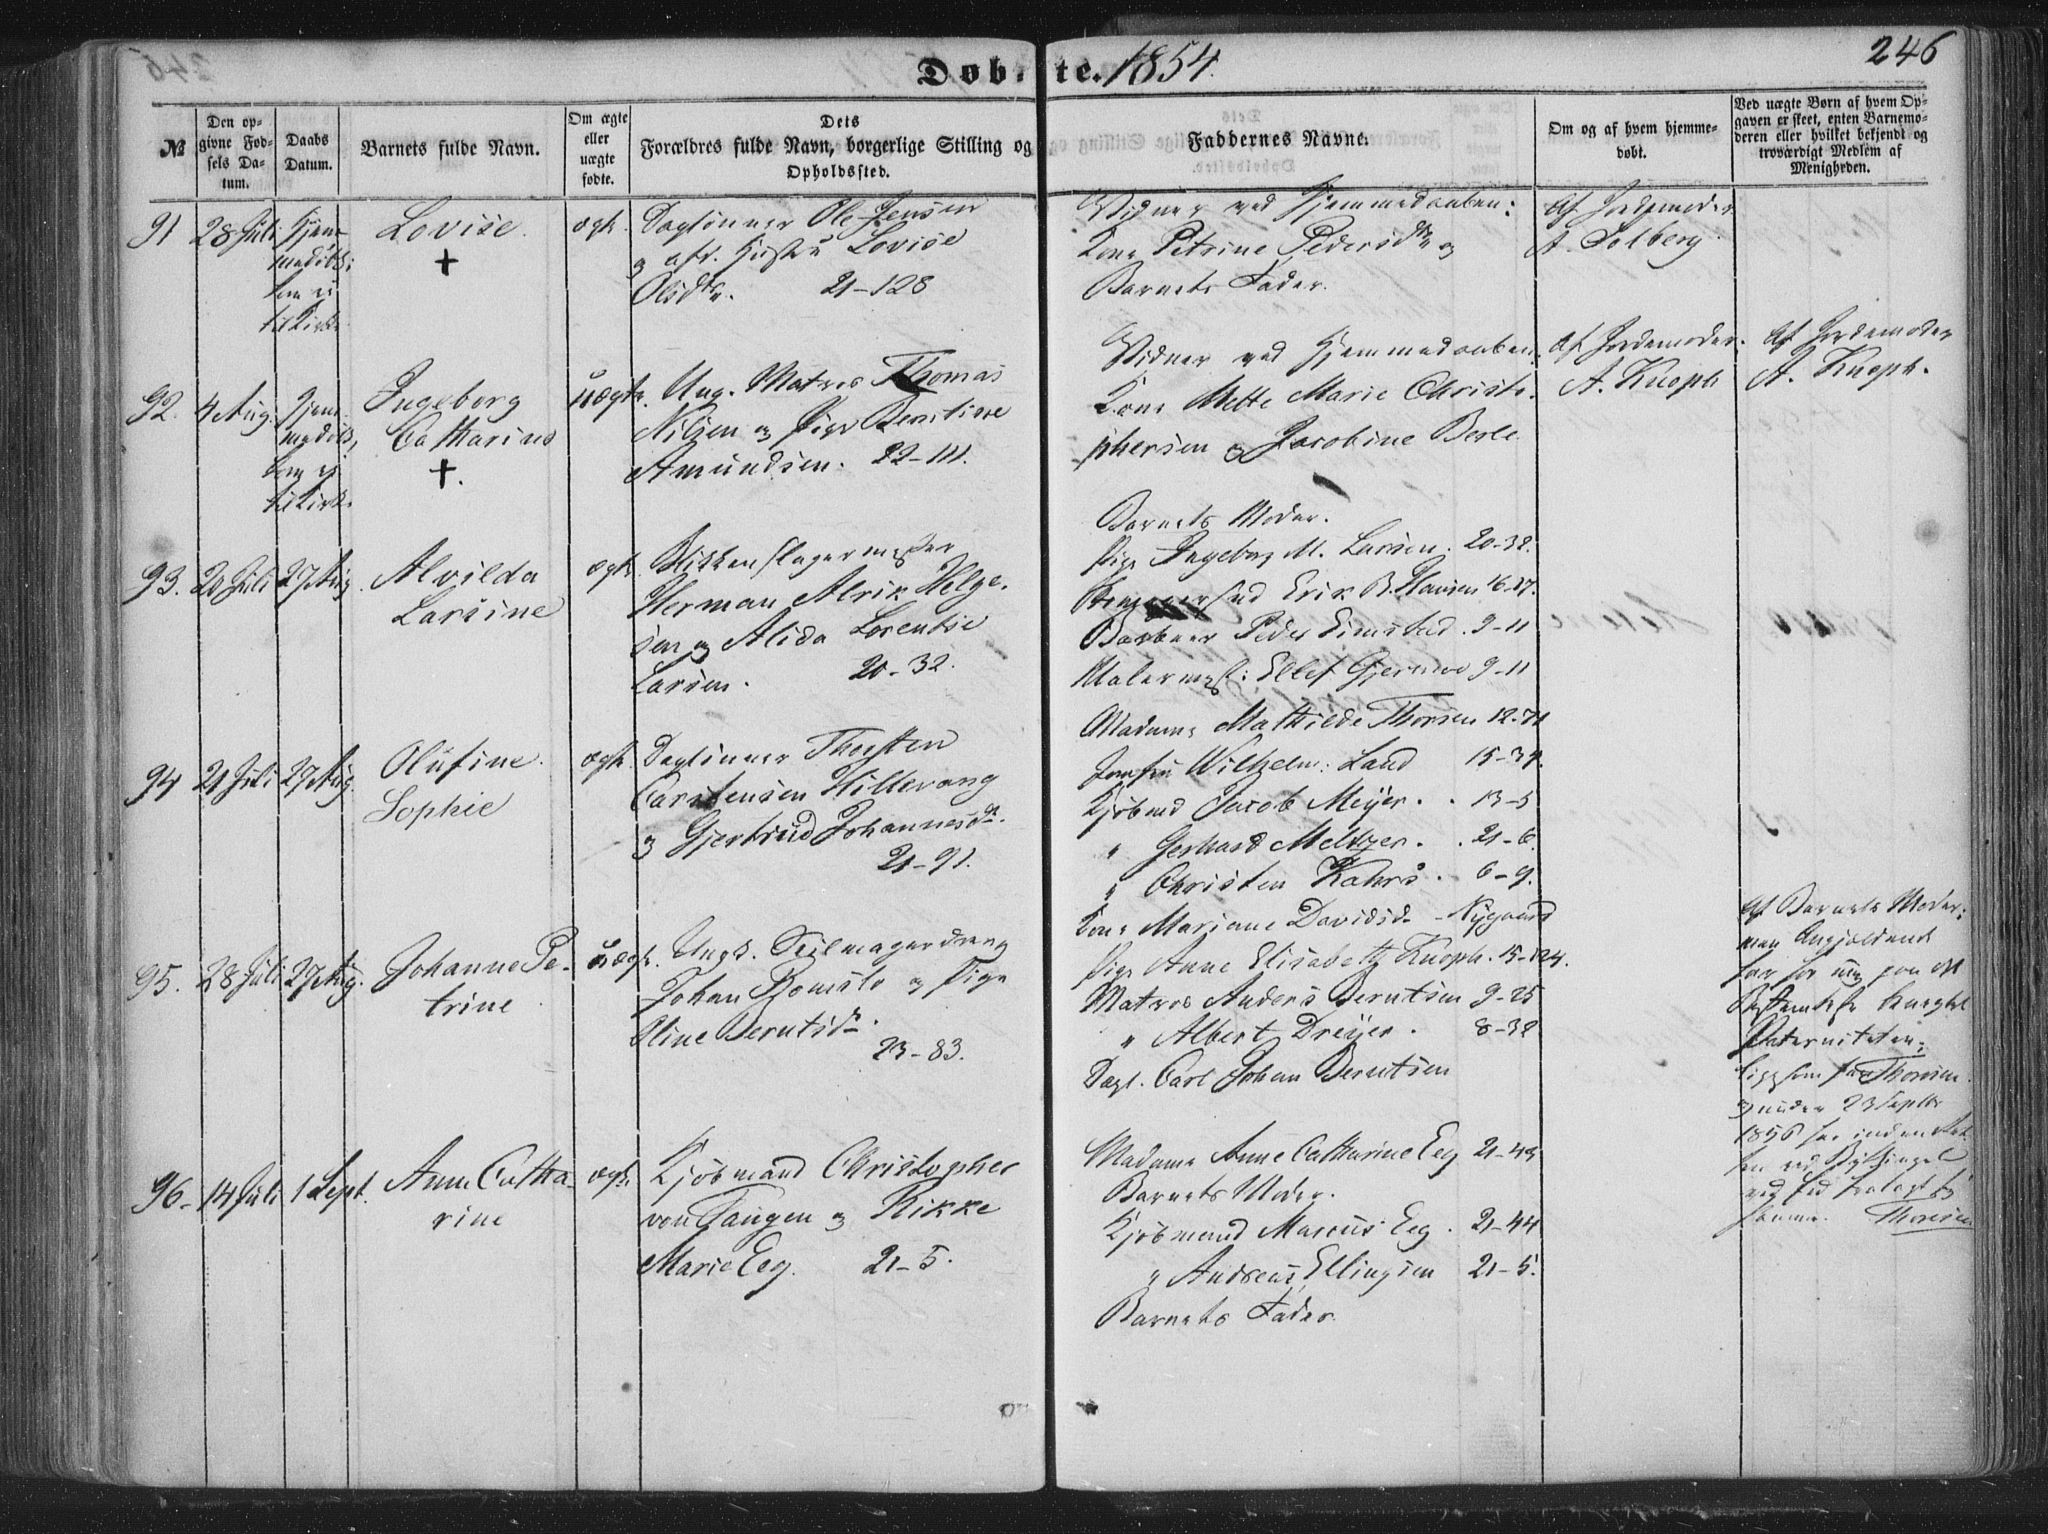 Døbte. 1854.
246
№
Den op-
givne Fød-
sels Da-
tum.
Daabs
Datum.
Barnets fulde Navn.
Om ægte
eller
uægte
fødte.
Dets
Forældres fulde Navn, borgerlige Stilling og
Opholdssted.
Faddernes Navne.
Om og af hvem hjemme-
døbt.
Ved uægte Børn af hvem Op-
gaven er skeet, enten Barnemo-
deren eller hvilket bekjendt og
troværdigt Medlem af
Menigheden.
91
28 Juli
Hjem-
medøbt;
kom ei
til Kirke
Lovise.
+
ægte.
Dagleinner Ole Jensen
og Hustru Lovise
Olsdtr. 21-128
Vidner ved Hjemmedaaben:
Kone Petrine Pedersdtr og
Barnets Fader.
Af Jordemoder
A. Solberg.
92.
4 Aug.
Hjem-
medøbt,
kom ei
til Kirke
Ingeborg
Catharine
+.
uægte.
Ung. Matros Thomas
Nilsen og Pige Berntine
Amundsen. 22-111.
Vidner ved Hjemmedaaben
Kone Mette Marie Christo-
phersen og Jacobine Berle
Barnets Moder.
Af Jordemoder
A. Knoph
Af Jordemoder
A. Knoph.
93.
20 Juli
27 Aug.
Alvilda
Larsine
ægte
Blikkenslagermester
Herman Alrik Helge-
sen og Alida Lorentse
Larsen. 20-32.
Pige Ingeborg M. Larsen. 20-32.
Erik B. Hansen 16-27.
Peder Eimstad. 9-11
Malermest: Ellef Gjermoe 9-11
Madame Mathilde Thorsen 12-71
94
21 Juli
27 Aug.
Olufine
Sophie
ægte.
Dagleinner Thorsten
Carstensen Hillevang
og Gjertrud Johannesdr.
21-91.
Jomfru Wilhelm: Laud 15-34.
Kjøbmd Jacob Meyer. . 13-5
" Gerhard Meltzer. . 21-6.
" Christen Kahrs. 6-9.
Kone Mariane Davidsdr Nygaard
95.
28 Juli
27 Aug.
Johanne Pe-
trine
uægte.
Ungk. Seilmagerdreng
Johan Romslo og Pige
Oline Berntsdr.
23-83.
Pige Anne Elisabeth Knoph. 15-124.
Matros Anders Berntsen 9-25
" Albert Dreyer. 8-32
Dagl. Carl Johan Berntsen
Af Barnets Moder;
men Angjældende
har for mig paa det
Bestemteste benegtet
Paterniteten;
Thorsen.
og under 23 Septbr
1856
ved Ed fralagt sig
samme. Thorsen
96.
14 Juli
1 Sept.
Anne Catha-
rine
ægte
Kjøbmand Christopher
von Tangen og Rikke
Marie Eeg. 21-5.
Madame Anne Catharine Eeg 21-49
Barnets Moder.
Kjøbmand Marcus Eeg. 21-44
" Andreas Ellingsen 21-5.
Barnets Fader.